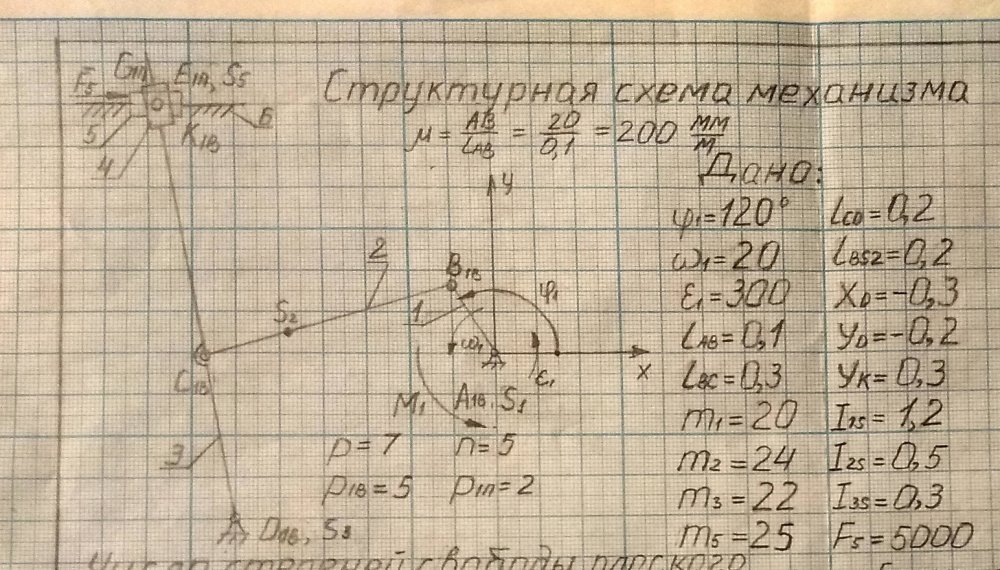 Структурная схема механизма
μ = AB/LAB = 20/0,1 = 200 мм/м
Дано:
φ₁=120° LCD=0,2
ω₁=20 LBS2=0,2
ε₁=300 XD=-0,3
LAB=0,1 YD=-0,2
LBC=0,3 YK=0,3
m₁=20 I1S=1,2
m₂=24 I2S=0,5
m₃=22 I3S=0,3
m₅=25 F₅=5000
G1П E1П, S5
F5
5
K1В
6
4
y
2
B1В
φ₁
1
S2
ω₁
C1В
ε₁
x
M₁
A1В, S1
p=7 n=5
3
p1В=5 p1П=2
D1В, S3
Число степеней свободы плоского